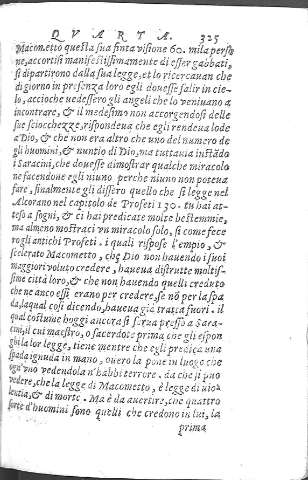 QVARTA. 325
Macometto questa sua finta visione 60. mila perso
ne, accortisi manifestissimamente di esser gabbati,
si dipartirono dalla sua legge, et lo ricercauan che
di giorno in presenza loro egli douesse salir in cie-
lo, accioche vedessero gli angeli che lo veniuano a
incontrare, & il medesimo non accorgendosi delle
sue sciocchezze, rispondeua che egli rendeua lode
a Dio, & che non era altro che uno del numero de
gli huomini, & nuntio di Dio, ma tuttauia instãdo
i Saracini, che douesse dimostrar qualche miracolo
ne facendone egli niuno perche niuno non poteua
fare, finalmente gli dissero quello che si legge nel
Alcorano nel capitolo de Profeti 130. tu hai at-
teso a sogni, & ci hai predicate molte bestemmie,
ma almeno mostraci vn miracolo solo, si come fece
ro gli antichi Profeti. i quali rispose l'empio, &
scelerato Macometto, che Dio non hauendo i suoi
maggiori voluto credere, haueua distrutte moltis-
sime città loro, & che non hauendo quelli creduto
che ne anco essi erano per credere, se nõ per la spa
da, la qual così dicendo, haueua già tratta fuori. il
qual costume hoggi ancora si serua presso a Sara-
cini, il cui maestro, o sacerdote prima che gli espon
ghi la lor legge, tiene mentre che egli predica una
spada ignuda in mano, ouero la pone in luogo che
ogn'vno vedendola n'habbi terrore. da che si può
vedere, che la legge di Macometto, è legge di uio-
lentia, & di morte. Ma è da auertire, che quattro
sorte d'huomini sono quelli che credono in lui, la
prima